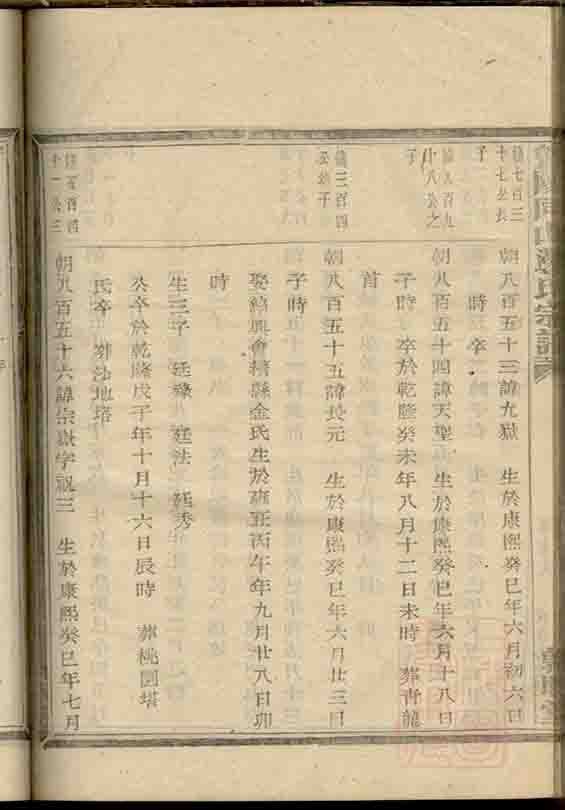 儉七百三
十七公長
子
朝八百五十三諱九嶽 生於康熙癸巳年六月初六日
時 卒
儉八百九
十八公之
子
朝八百五十四諱天聖 生於康熙癸巳年六月十八日
子時 卒於乾隆癸未年八月十二日未時 葬青龍
首
儉三百四
公公子
朝八百五十五諱長元 生於康熙癸巳年六月廿三日
子時
娶紹興會稽縣金氏生於雍正丙午年九月廿八日卯
時
生三子 廷祿 廷法 廷秀
公卒於乾隆戊子年十月十六日辰時 葬桃園塔
氏卒 葬沿地塔
十一公三
朝八百五十六諱宗嶽字視三 生於康熙癸巳年七月